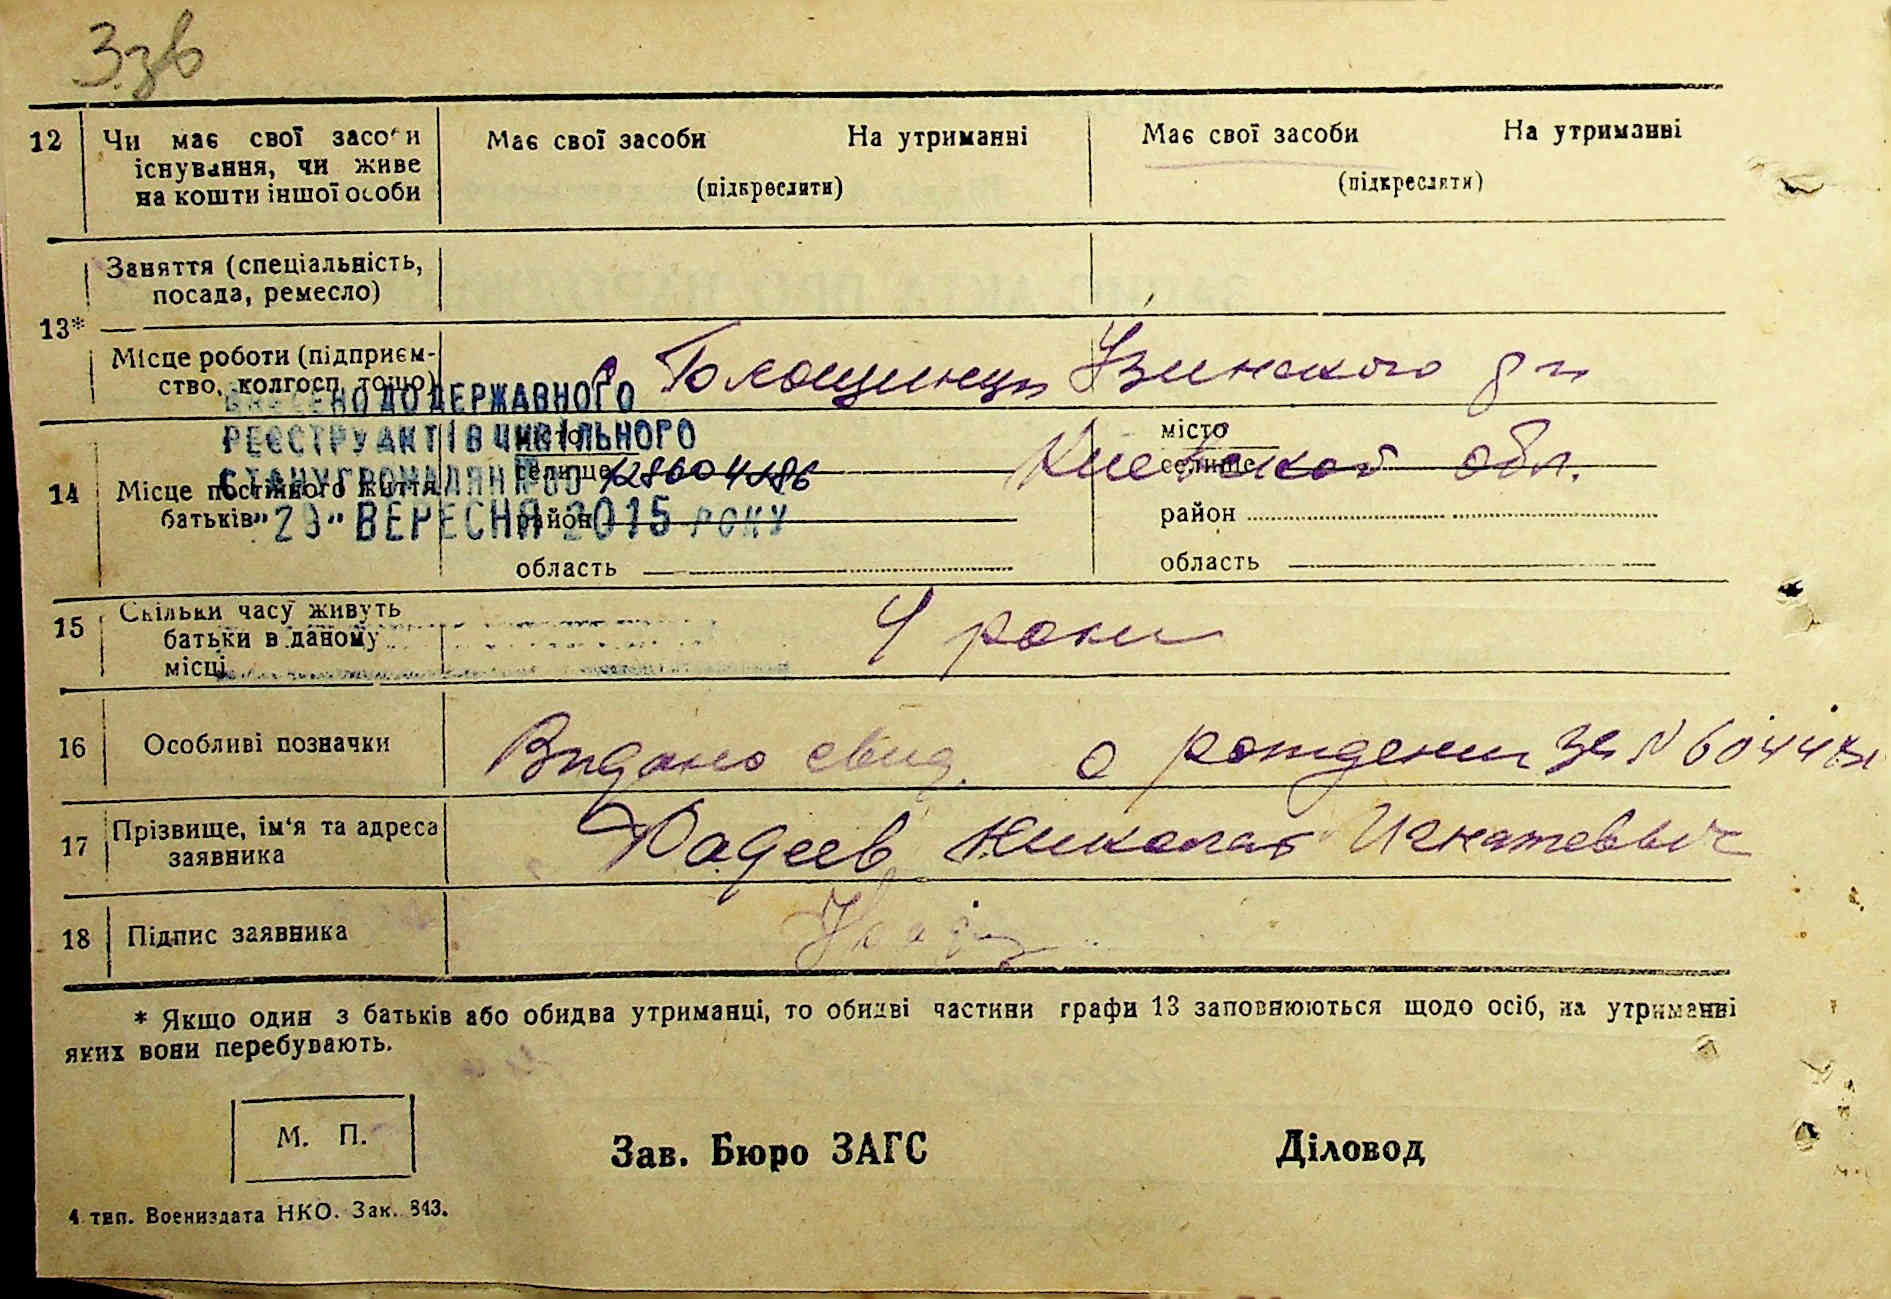 3зв
12 Чи має свої засоби Має свої засоби На утриманні Має свої засоби На утриманні
існування, чи живе
на кошти іншої особи (підкреслити) (підкреслити)
Заняття (спеціальність,
посада, ремесло)
13*
Місце роботи (підприєм-
ство, колгосп тощо)
Узинского р-н
ВНЕСЕНО ДО ДЕРЖАВНОГО
РЕЄСТРУ АКТІВ ЦИВІЛЬНОГО
СТАНУ ГРОМАДЯН
"29" ВЕРЕСНЯ 2015 РОКУ
14 Місце постійного життя
батьків
місто місто
селище селище
Киевской обл.
район район
область область
15 Скільки часу живуть
батьки в даному
місці
4 роки
16 Особливі позначки Видано свид. о рождении за N
17 Прізвище, ім'я та адреса
заявника
Фадеев Николай Игнатевич
18 Підпис заявника
* Якщо один з батьків або обидва утриманці, то обидві частини графи 13 заповнюються щодо осіб, на утриманні
яких вони перебувають.
М. П.
Зав. Бюро ЗАГС Діловод
4 тип. Воениздата НКО. Зак. 843.